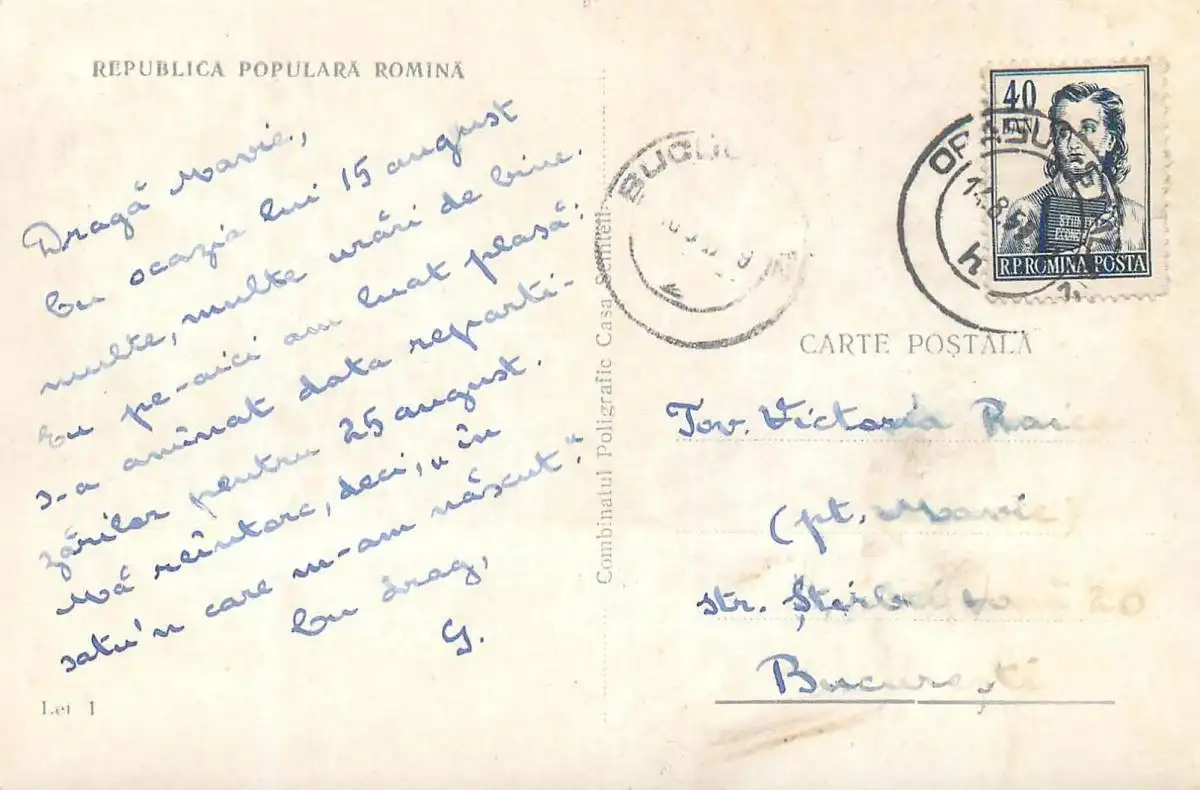 REPUBLICA POPULARĂ ROMINĂ
Dragă Mavie,
Cu ocazia lui 15 august
multe, multe urări de bine.
Eu pe-aici am luat plasă:
s-a amînat data reparti-
zărilor pentru 25 august.
Mă reîntorc, deci, „în
satu'n care m-am născut".
Cu drag,
G.
Lei 1
Combinatul Poligrafic Casa Scînteii
40
BANI
STUDII
R.P.ROMINA POSTA
14.8.
CARTE POȘTALĂ
Tov. Victoria
(pt. Mavie)
str. Știrbei 20
București